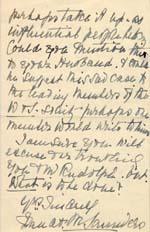 perhaps take it up. as
influential people
Could you mention this
to your Husband. I could
suggest his sad case to
the leading members of the
perhaps one
member would write to him
I am sure you will
excuse me troubling
you & Mr Rudolph. but
What is to be done?
Yrs Sincerely